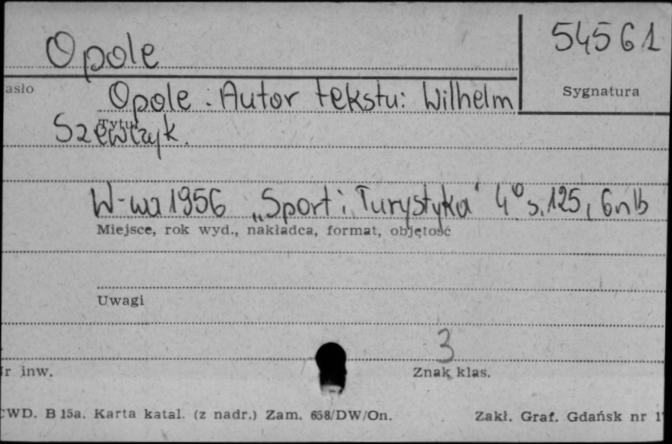 Opole
54561
asło
Sygnatura
Opole. Autor tekstu: Wilhelm
Tytuł
Szewczyk.
W-wa 1956 „Sport i Turystyka" 4° s. 125, 6 nlb
Miejsce, rok wyd., nakładca, format, objętość
Uwagi
3
r inw.
Znak klas.
CWD. B 15a. Karta katal. (z nadr.) Zam. 658/DW/On.
Zakł. Graf. Gdańsk nr 1